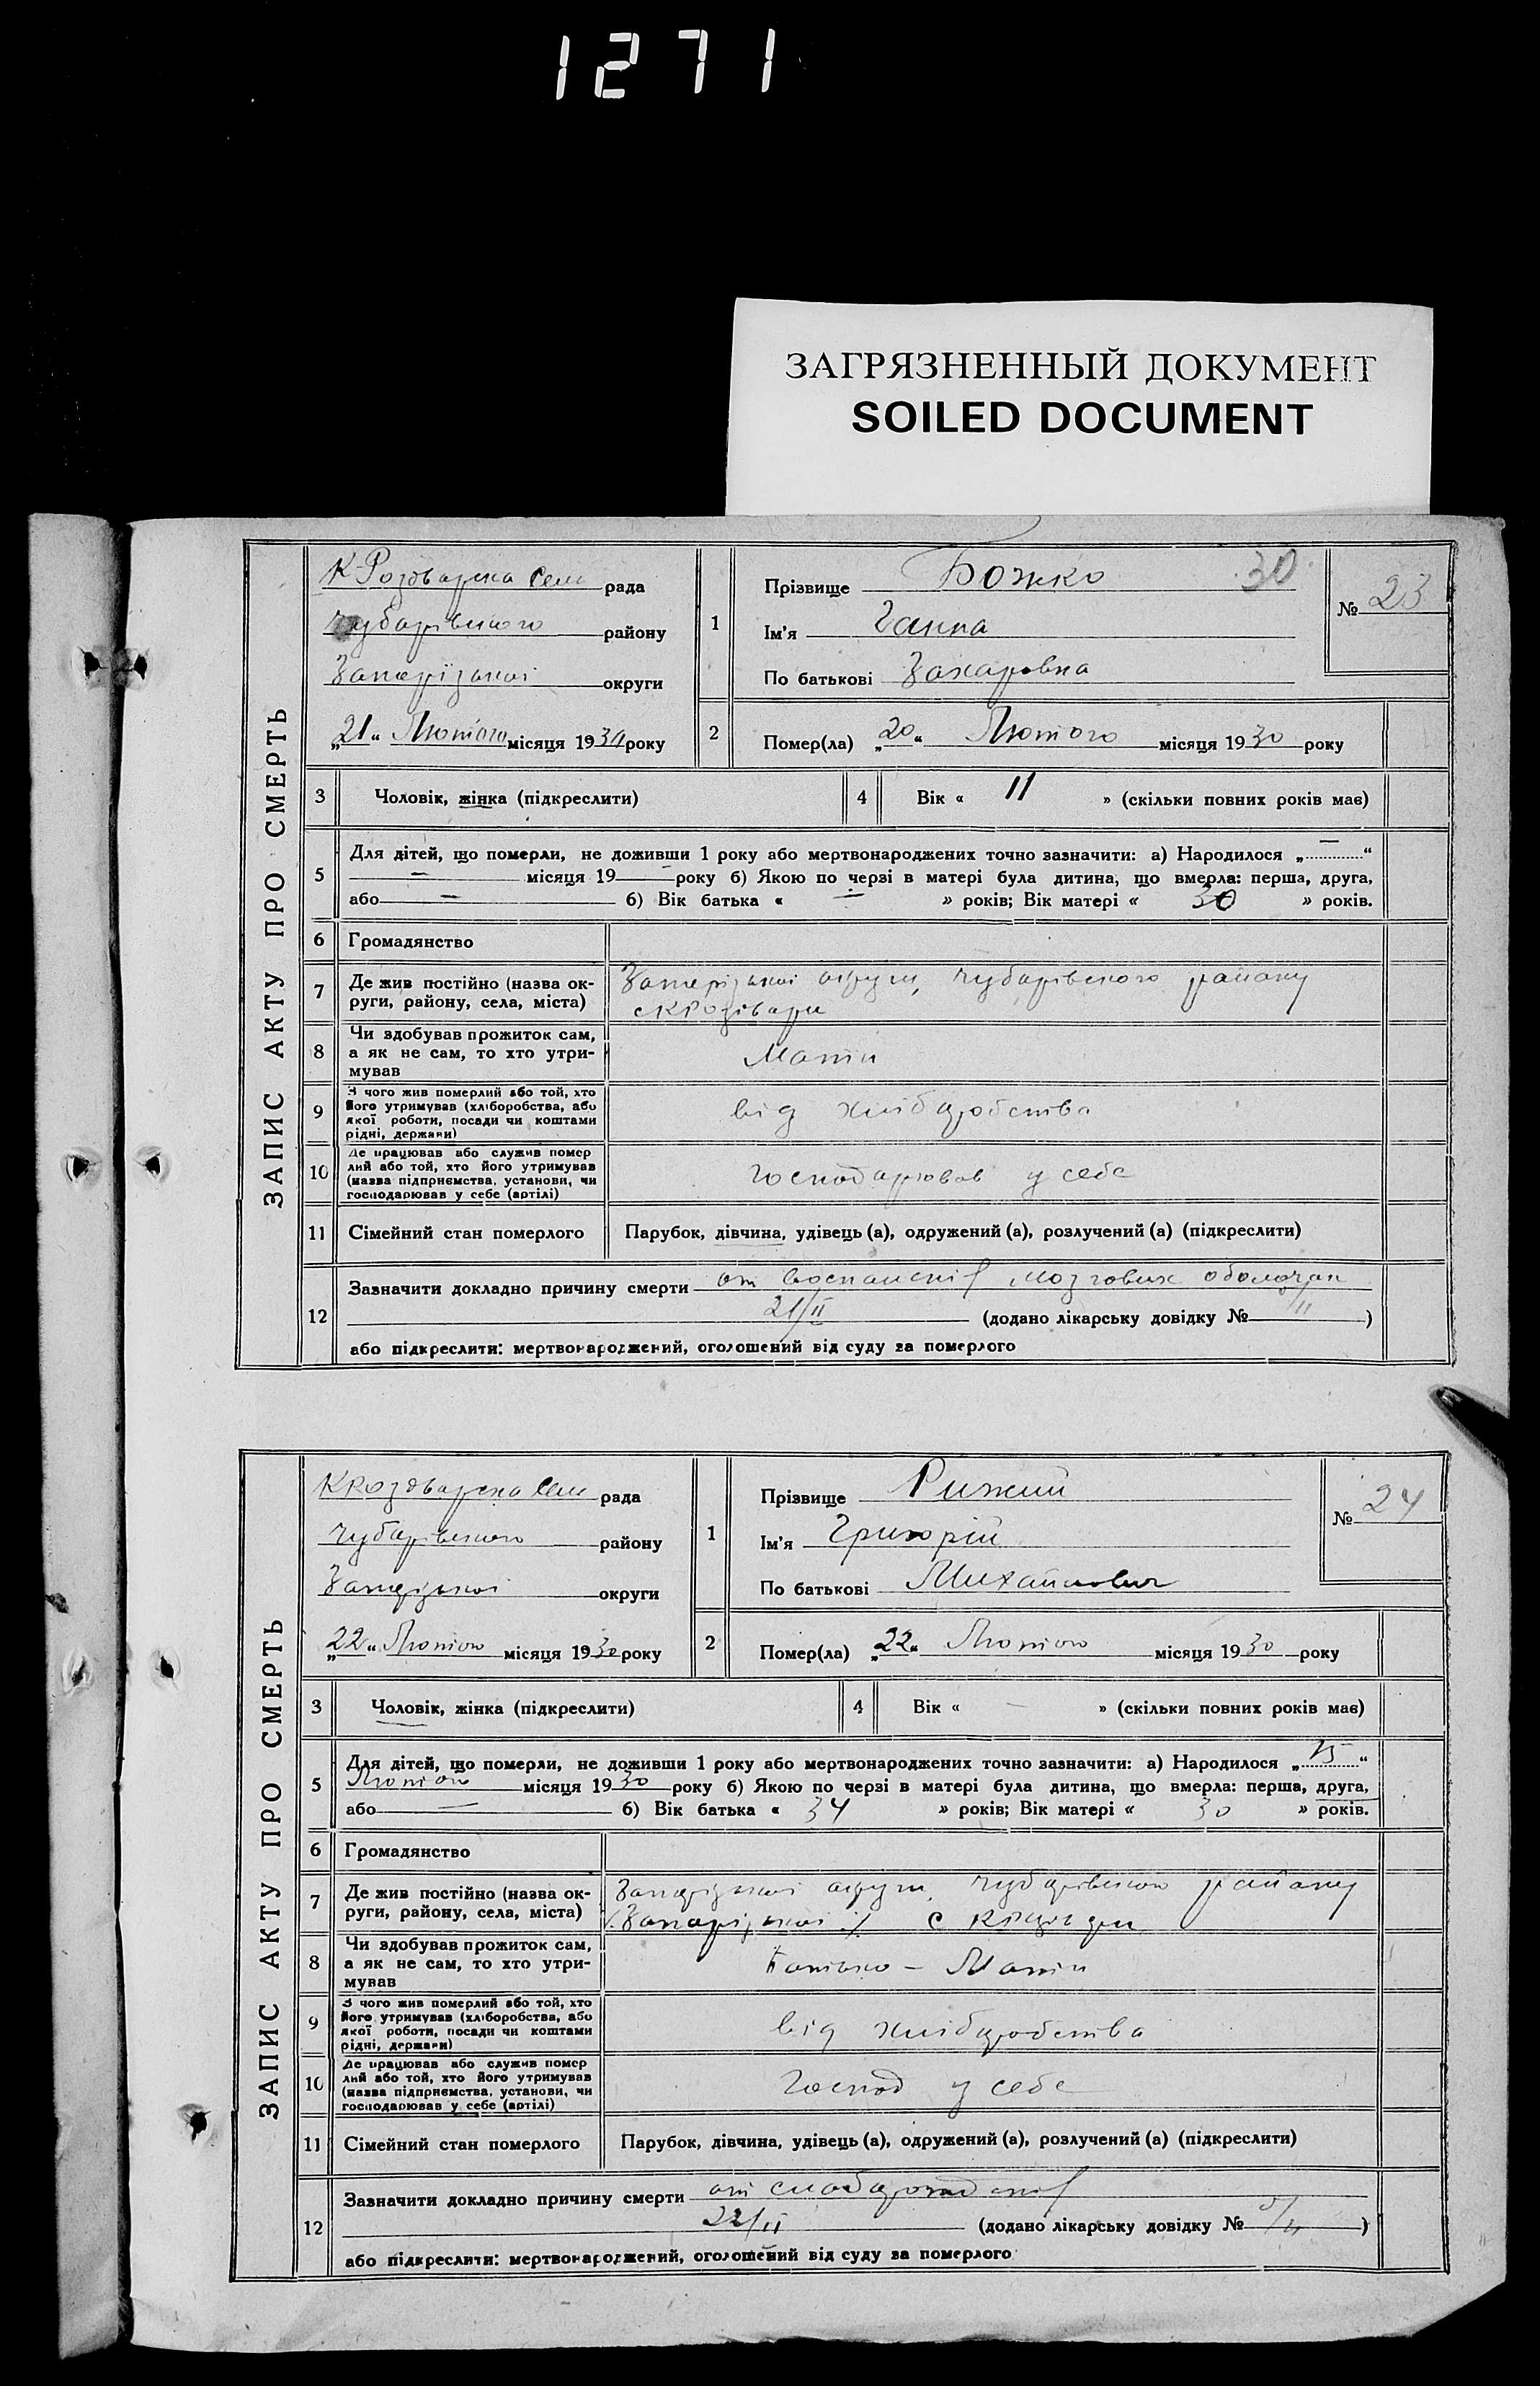 1271
ЗАГРЯЗНЕННЫЙ ДОКУМЕНТ
SOILED DOCUMENT
ЗАПИС АКТУ ПРО СМЕРТЬ
К-Роздварска Сель рада
Чубарівського району
Запорізької округи
„21“ Лютого місяця 1930 року
1
Прізвище Божко 30
Ім'я Ганна
По батькові Захаровна
№ 23
2
Помер(ла) „20“ Лютого місяця 1930 року
3 Чоловік, жінка (підкреслити)
4 Вік « 11 » (скільки повних років має)
5 Для дітей, що померли, не доживши 1 року або мертвонароджених точно зазначити: а) Народилося „ — “
— місяця 19 — року б) Якою по черзі в матері була дитина, що вмерла: перша, друга,
або — б) Вік батька « — » років; Вік матері « 30 » років.
6 Громадянство
7 Де жив постійно (назва округи, району, села, міста) Запорізької округи, Чубарівського району
8 Чи здобував прожиток сам,
а як не сам, то хто утри-
мував Мати
9 З чого жив померлий або той, хто
його утримував (хліборобства, або
якої роботи, посади чи коштами
рідні, держави) від хліборобства
10 Де працював або служив помер
лий або той, хто його утримував
(назва підприємства, установи, чи
господарював у себе (артілі) Господарював у себе
11 Сімейний стан померлого Парубок, дівчина, удівець (а), одружений (а), розлучений (а) (підкреслити)
12 Зазначити докладно причину смерти от воспаленія мозгових оболочек
21/II (додано лікарську довідку № /II )
або підкреслити: мертвонароджений, оголошений від суду за померлого
ЗАПИС АКТУ ПРО СМЕРТЬ
КРоздварска Сель рада
Чубарівського району
Запорізької округи
„22“ Лютого місяця 1930 року
1
Прізвище Рижий
Ім'я Григорій
По батькові Михайлович
№ 24
2
Помер(ла) „22“ Лютого місяця 1930 року
3 Чоловік, жінка (підкреслити)
4 Вік « — » (скільки повних років має)
5 Для дітей, що померли, не доживши 1 року або мертвонароджених точно зазначити: а) Народилося „15“
Лютого місяця 1930 року б) Якою по черзі в матері була дитина, що вмерла: перша, друга,
або — б) Вік батька « 34 » років; Вік матері « 30 » років.
6 Громадянство
7 Де жив постійно (назва округи, району, села, міста) Запорізької округи, Чубарівського району
(Запорізької)
8 Чи здобував прожиток сам,
а як не сам, то хто утри-
мував Батько – Мати
9 З чого жив померлий або той, хто
його утримував (хліборобства, або
якої роботи, посади чи коштами
рідні, держави) від хліборобства
10 Де працював або служив помер
лий або той, хто його утримував
(назва підприємства, установи, чи
господарював у себе (артілі) Господ у себе
11 Сімейний стан померлого Парубок, дівчина, удівець (а), одружений (а), розлучений (а) (підкреслити)
12 Зазначити докладно причину смерти от слаборожденія
22/II (додано лікарську довідку № )
або підкреслити: мертвонароджений, оголошений від суду за померлого